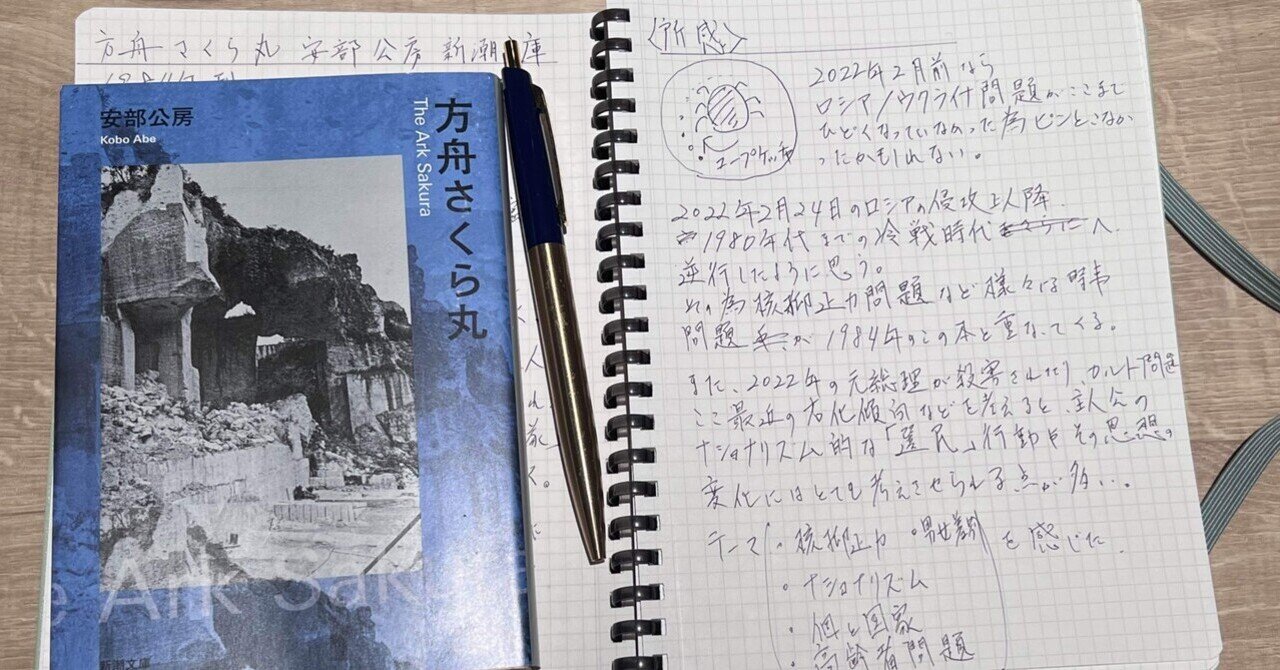 方舟さくら丸 安部公房 新潮文庫
1984年刊
安部公房
Kobo Abe
方舟さくら丸
The Ark Sakura
e Ark Sak
新潮文庫
人
く。
に
〈所感〉
ユープケッチャ
2022年2月前なら
ロシア/ウクライナ問題がここまで
ひどくなっていなかった為ピンとこなか
ったかもしれない。
2022年2月24日のロシアの侵攻以降、
1980年代までの冷戦時代へ
逆行したように思う。
その為核抑止力問題など様々な時事
問題が1984年のこの本と重なってくる。
また、2022年の元総理が殺害されたり、カルト問題
ここ最近の右化傾向などを考えると主人公の
ナショナリズム的な「選民」行動やその思想の
変化にはとても考えさせられる点が多い。
テーマ ・核抑止力 ・男女差別 を感じた。
・ナショナリズム
・個と国家
・高齢者問題